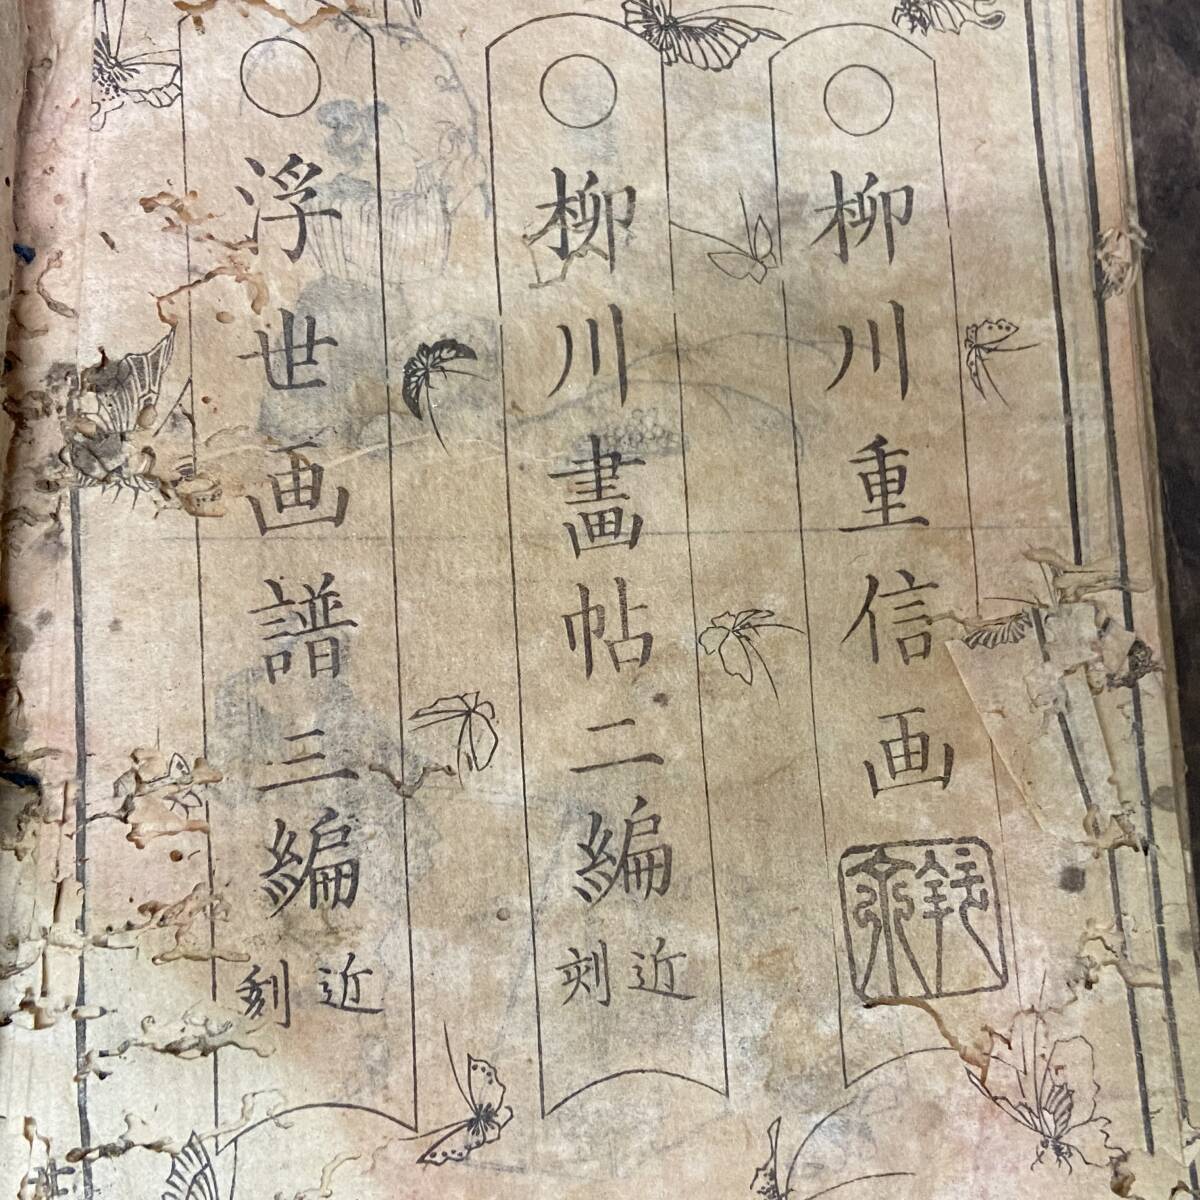 柳川重信画
柳川畫帖二編
近刻
浮世画譜三編
近刻